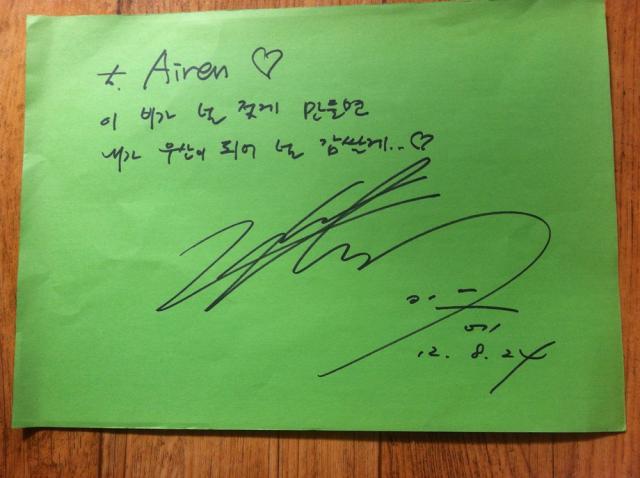 to. Airen ♡
이 비가 널 젖게 만들면
내가 우산이 되어 널 감쌀게..♡
12. 8. 24